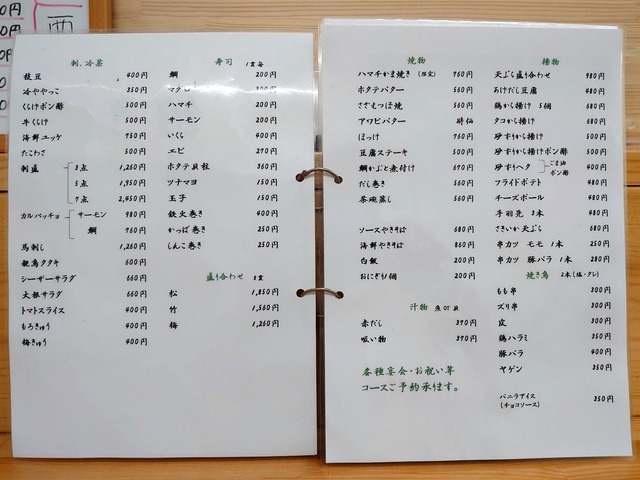 西
刺、冷菜
枝豆 400円
冷ややっこ 350円
くらげポン酢 500円
牛くらげ 500円
海鮮ユッケ 950円
たこわさ 500円
刺盛 3点 1,260円
5点 1,950円
7点 2,450円
カルパッチョ サーモン 980円
鯛 960円
馬刺し 1,260円
親鳥タタキ 600円
シーザーサラダ 660円
大根サラダ 660円
トマトスライス 400円
もろきゅう 400円
梅きゅう 400円
寿司 1貫毎
鯛 200円
マグロ 300円
ハマチ 200円
サーモン 200円
いくら 400円
エビ 290円
ホタテ貝柱 360円
ツナマヨ 150円
玉子 150円
鉄火巻き 400円
かっぱ巻き 250円
しんこ巻き 250円
盛り合わせ
松 1,850円
竹 1,560円
梅 1,260円
焼物
ハマチかま焼き (限定) 760円
ホタテバター 560円
さざえつぼ焼 560円
アワビバター 時価
ほっけ 760円
豆腐ステーキ 500円
鯛かぶと煮付け 690円
だし巻き 560円
茶碗蒸し 560円
ソースやきそば 680円
海鮮やきそば 860円
白飯 200円
おにぎり1個 200円
汁物 魚or貝
赤だし 390円
吸い物 390円
各種宴会・お祝い等
コースご予約承ります。
揚物
天ぷら盛り合わせ 980円
あげだし豆腐 480円
鶏から揚げ 5個 680円
タコから揚げ 680円
砂ずりから揚げ 500円
砂ずりから揚げポン酢 500円
砂ずりヘタ ごま油 ポン酢 400円
フライドポテト 480円
チーズボール 480円
手羽先 3本 480円
さきいか天ぷら 580円
串カツ モモ 1本 250円
串カツ 豚バラ 1本 280円
焼き鳥 2本(塩・タレ)
もも串 300円
ズリ串 300円
皮 300円
鶏ハラミ 350円
豚バラ 400円
ヤゲン 350円
バニラアイス
(チョコソース) 350円